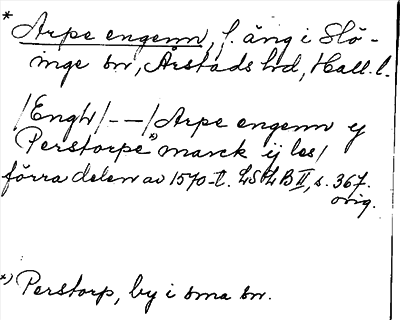 * Arpe engenn, f. äng i Slö-
inge sn, Årstads hd, Hall. l.
/Engh/ - - / Arpe engenn ÿ
Perstorpe *) marck ij les/
förra delen av 1570-t. LSLB II, s. 367.
orig.
*) Perstorp, by i sma sn.